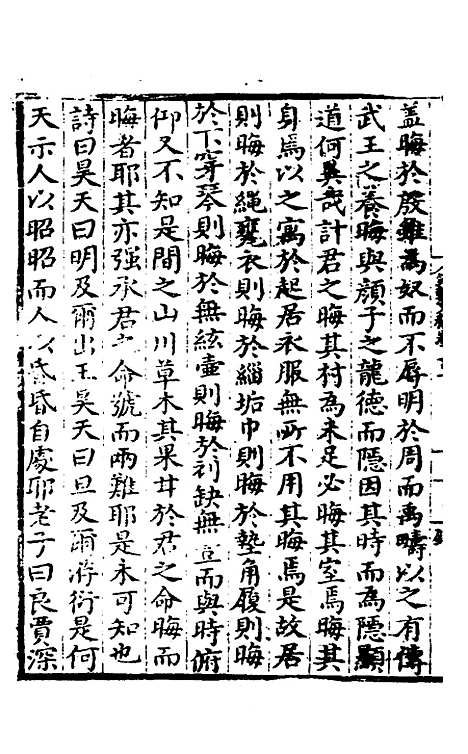 盖晦於殷雖為奴而不辱明於周而禹疇以之有傳
武王之養晦與顔子之龍德而隠因其時而為隠顯
道何異㦲計君之晦其村為未足必晦其室焉晦其
身焉以之寓於起居衣服無所不用其晦焉是故居
則晦於繩甕衣則晦於緇垢巾則晦於墊角履則晦
於下穿琴則晦於無絃壷則晦於刓缺無宜而與時俯
仰又不知是間之山川草木其果甘於君之命晦而
晦者耶其亦强承君之命號而兩難耶是未可知也
詩曰昊天曰明及爾出王昊天曰旦及爾游衍是何
天示人以昭昭而人以昏昏自處耶老子曰良賈深